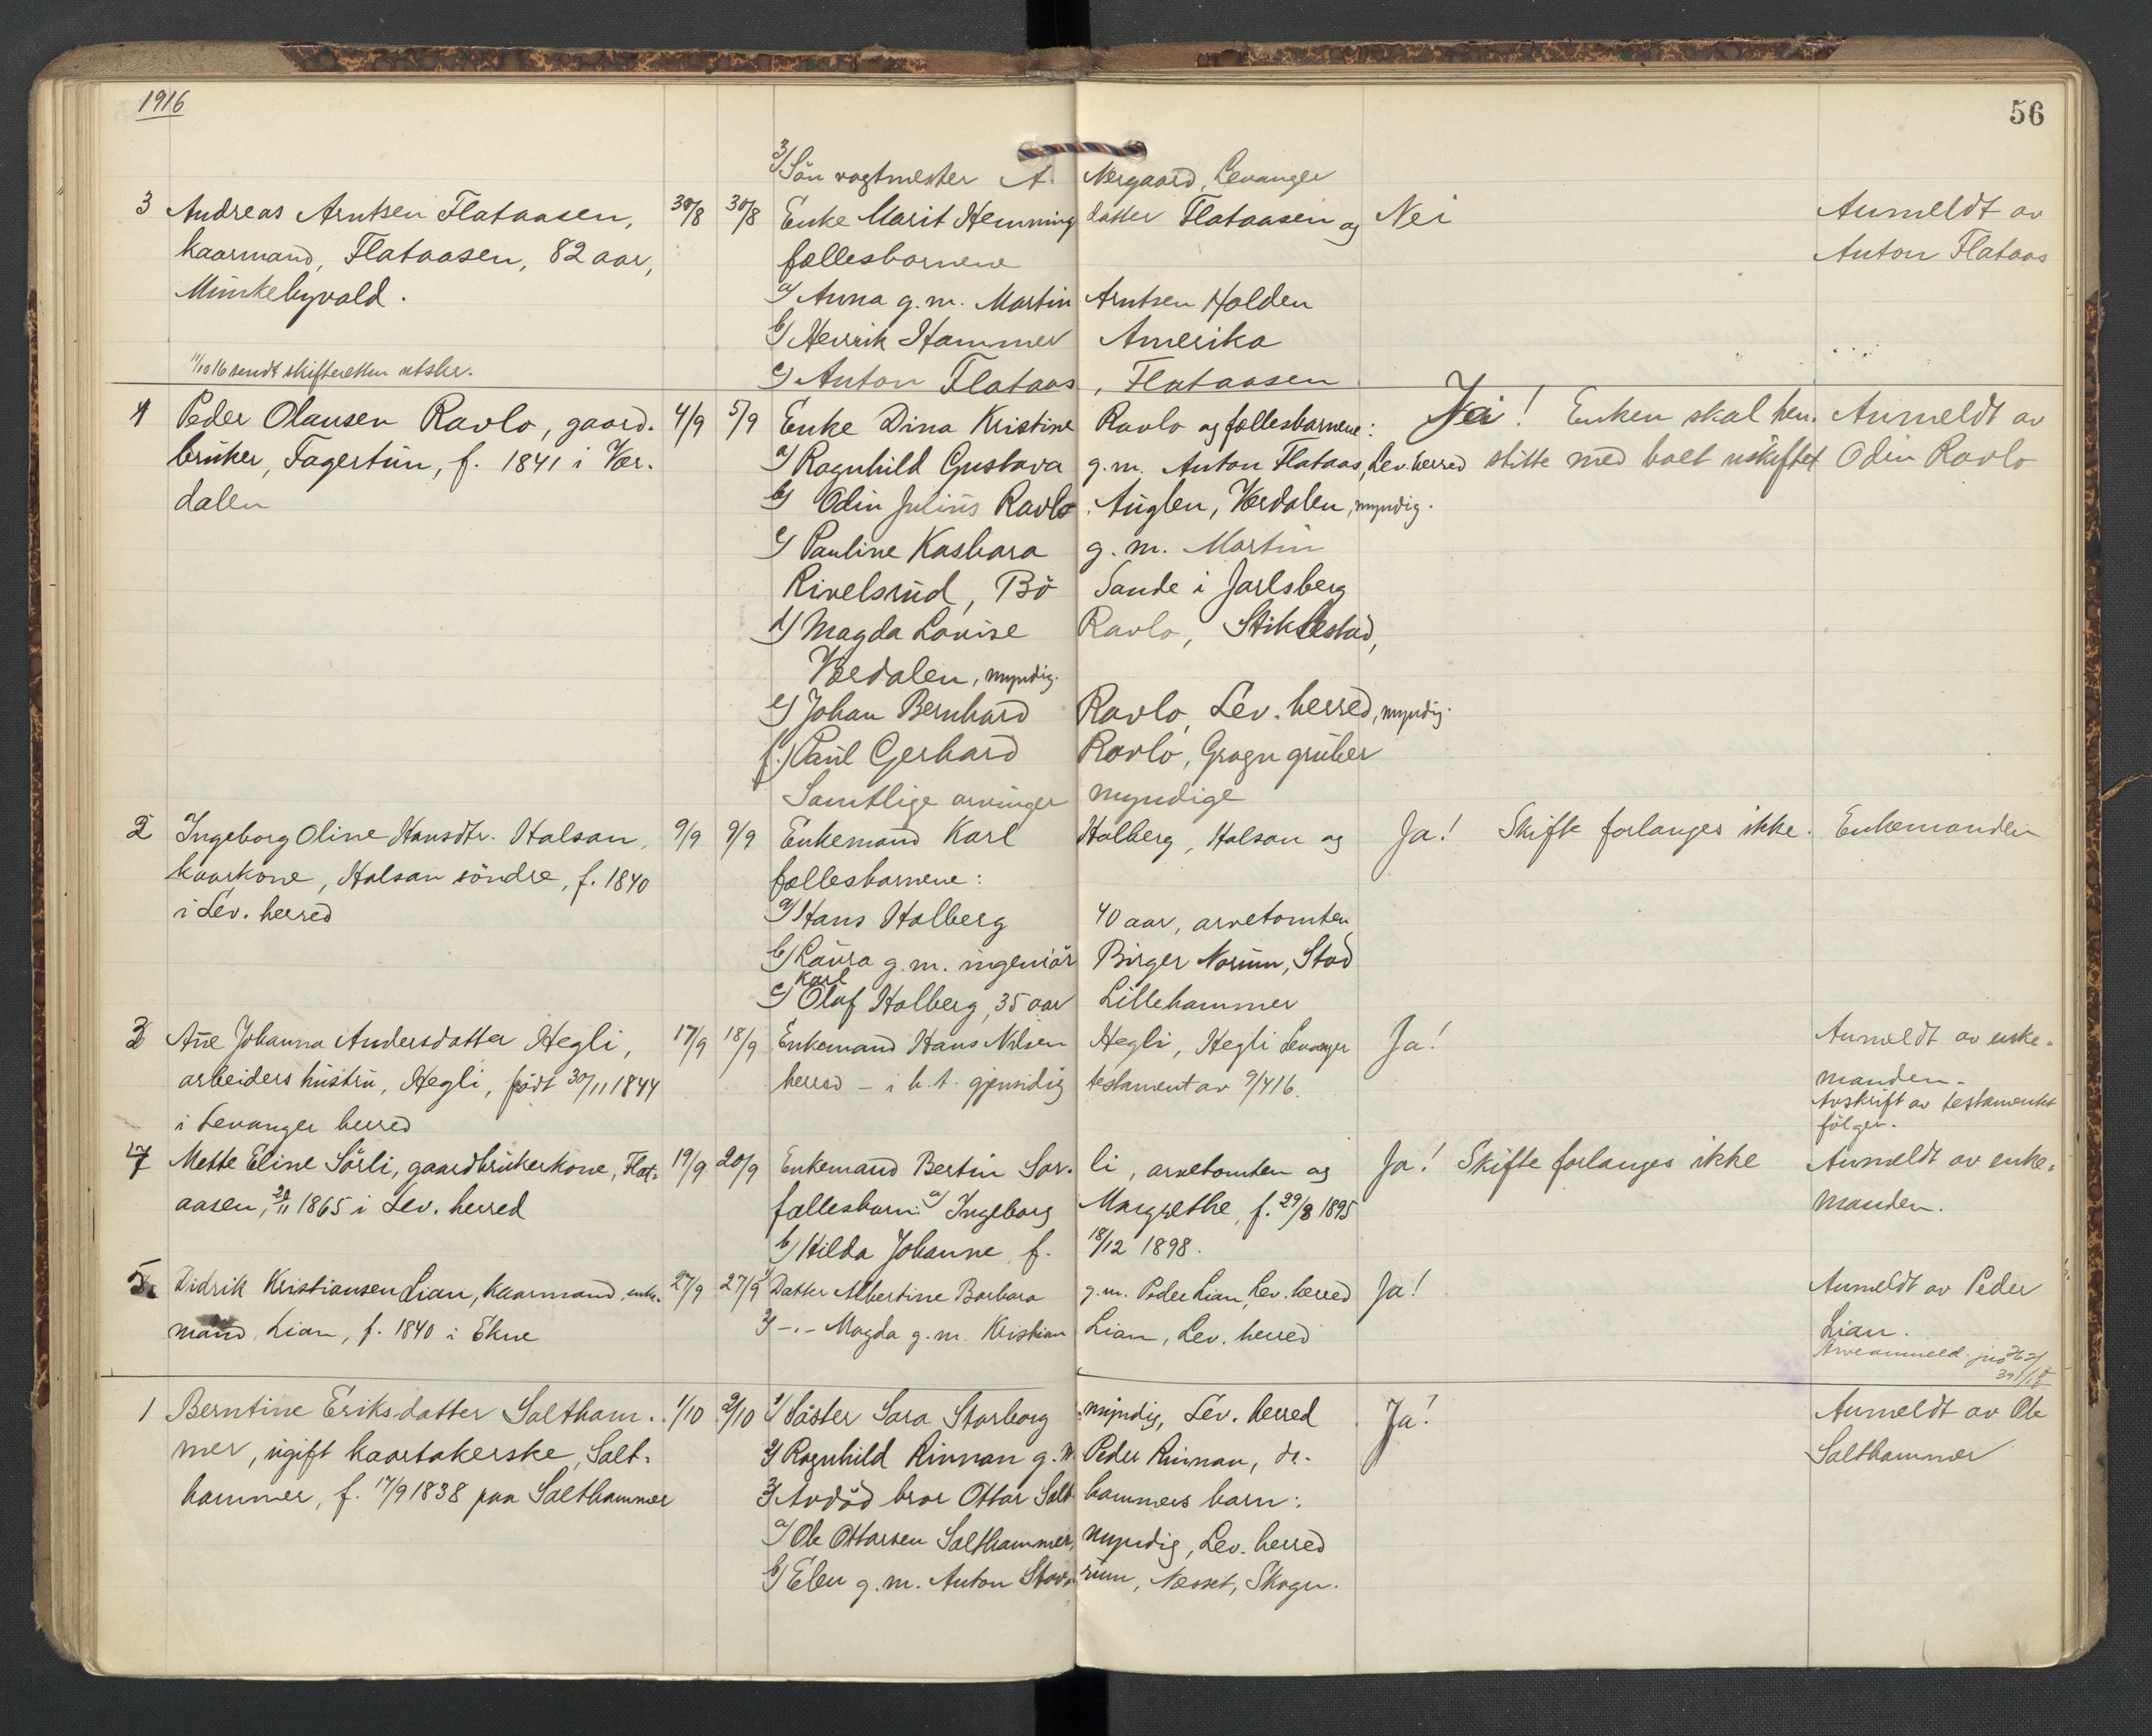 1916
56
3/ Sön vogtmester A. Nergaard, Levanger
3 Andreas Arntsen Flataasen, 30/8 30/8 Enke Marit Hemmingdatter Flataasen og Nei Anmeldt av
kaarmand, Flataasen, 82 aar, fællesbarnene Anton Flataas
Munkebyvald. a/ Anna g.m. Martin Arntsen Holden
b/ Henrik Hammer Amerika
11/10 16 sendt skifteretten utskr. c/ Anton Flataas, Flataasen
1 Peder Olausen Ravlo, gaard- 4/9 5/9 Enke Dina Kristine Ravlo og fællesbarnene: ! Enken skal hen- Anmeldt av
bruker, Fagertun, f. 1841 i Vær- a/ Ragnhild Gustava g.m. Anton Flataas, Lev. herred sitte med boet uskiftet Odin Ravlo
dalen b/ Odin Julius Ravlo, Auglen, Værdalen, myndig.
c/ Pauline Kasbara g.m. Martin
Rivelsrud, Bö Sande i Jarlsberg
d/ Magda Lovise Ravlo, Stiklestad,
Værdalen, myndig.
e/ Johan Bernhard Ravlo, Lev. herred, myndig.
f/ Paul Gerhard Ravlo, Gruben
Samtlige arvinger myndige
2 Ingeborg Oline Hansdtr. Halsan, 9/9 9/9 Enkemand Karl Halberg, Halsan og Ja! Skifte forlanges ikke. Enkemanden
kaarkone, Halsan söndre, f. 1840 fællesbarnene:
i Lev. herred a/ Hans Halberg 40 aar, arvetomten
b/ Laura g.m. ingeniör Birger Norum, Stod
c/ Karl Olaf Halberg, 35 aar Lillehammer
3 Ane Johanna Andersdatter Hegli, 17/9 18/9 Enkemand Hans Nilsen Hegli, Hegli Levanger Ja! Anmeldt av enke-
arbeiders hustru, Hegli, födt 30/11 1844 herred – i h.t. gjensidig testament av 9/4 16. manden.
i Levanger herred Avskrift av testamentet
fölger.
4 Mette Eline Sörli, gaardbrukerkone, Flat- 19/9 20/9 Enkemand Bertin Sörli, arvetomten og Ja! Skifte forlanges ikke Anmeldt av enke-
aasen, 20/11 1865 i Lev. herred fællesbarn: a/ Ingeborg Margrethe, f. 29/8 1895 manden.
b/ Hilda Johanne, f. 18/12 1898.
5. Didrik Kristiansen Lian, kaarmand, enke- 27/9 27/9 1/ Datter Albertine Barbara g.m. Peder Lian, Lev. herred Ja! Anmeldt av Peder
mand, Lian, f. 1840 i Ekne 2/ –"– Magda g.m. Kristian Lian, Lev. herred Lian.
Arveanmeld.
1 Berntine Eriksdatter Saltham- 1/10 2/10 1/ Söster Sara Storborg myndig, Lev. herred Ja! Anmeldt av Ole
mer, ugift kaartakerske, Salt- 2/ Ragnhild Rinnan g.m. Peder Rinnan, do. Salthammer
hammer, f. 17/9 1838 paa Salthammer 3/ Avdöd bror Ottar Salthammers barn:
a/ Ole Ottarsen Salthammer, myndig, Lev. herred
b/ Elen g.m. Anton Stavrum, Nesset, Skogn.